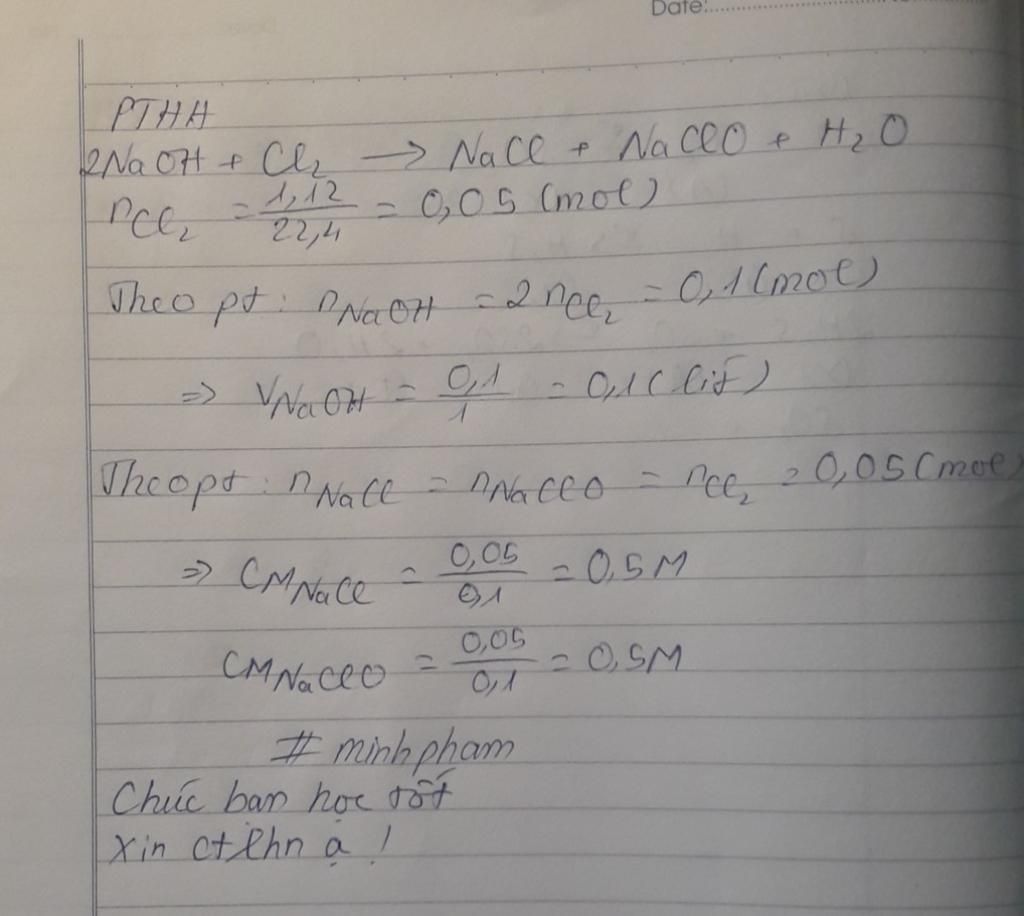 Date:
PTHH
2NaOH + Cl₂ → NaCl + NaClO + H₂O
nCl₂ = 1,12/22,4 = 0,05 (mol)
Theo pt : nNaOH = 2nCl₂ = 0,1 (mol)
=> VNaOH = 0,1/1 = 0,1 (lít)
Theo pt : nNaCl = nNaClO = nCl₂ = 0,05 (mol)
=> CMNaCl = 0,05/0,1 = 0,5M
CMNaClO = 0,05/0,1 = 0,5M
# minhpham
Chúc bạn học tốt
Xin ctlhn ạ !